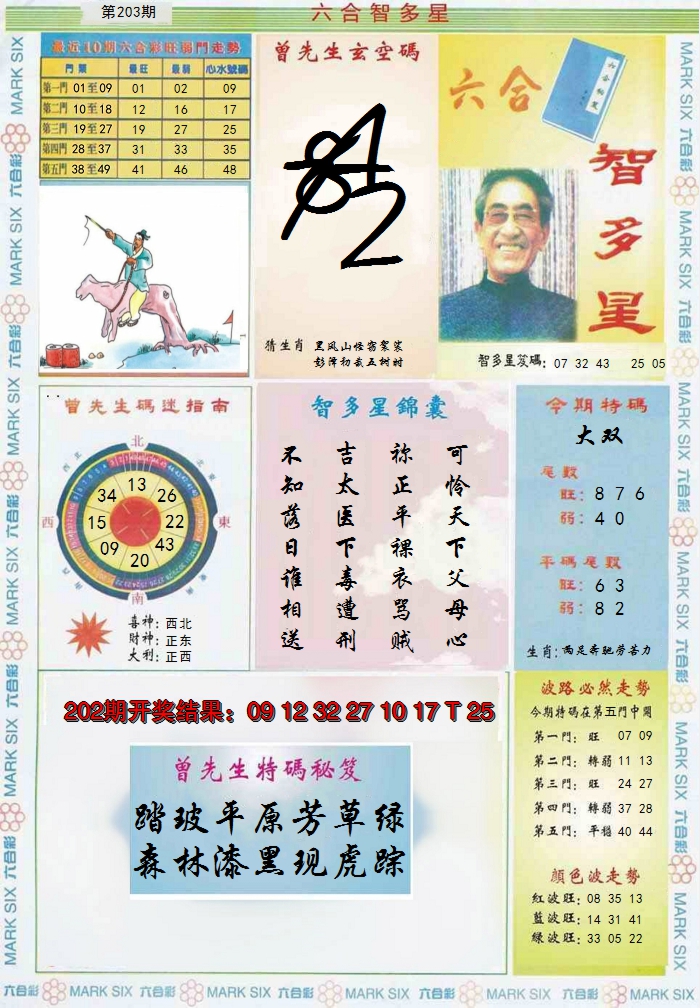 第203期
六合智多星
最近10期六合彩旺弱門走勢
門類 最旺 最弱 心水號碼
第一門 01至09 01 02 09
第二門 10至18 12 16 17
第三門 19至27 19 27 25
第四門 28至37 31 33 35
第五門 38至49 41 46 48
曾先生玄空碼
猜生肖 黑风山怪窃袈裟
彭泽初栽五树时
六合
智多星
智多星笈碼: 07 32 43 25 05
曾先生碼迷指南
北
西
東
南
13
26
22
43
20
09
15
34
喜神: 西北
財神: 正东
大利: 正西
智多星錦囊
可怜天下父母心
祢正平裸衣骂贼
吉太医下毒遭刑
不知落日谁相送
今期特碼
大双
尾數
旺: 8 7 6
弱: 4 0
平碼尾數
旺: 6 3
弱: 8 2
生肖: 两足奔驰劳苦力
202期开奖结果: 09 12 32 27 10 17 T 25
曾先生特碼秘笈
踏玻平原芳草绿
森林漆黑现虎踪
波路必然走勢
今期特碼在第五門中開
第一門: 旺 07 09
第二門: 轉弱 11 13
第三門: 旺 24 27
第四門: 轉弱 37 28
第五門: 平穩 40 44
顏色波走勢
紅波旺: 08 35 13
藍波旺: 14 31 41
綠波旺: 33 05 22
六合彩 MARK SIX 六合彩 MARK SIX 六合彩 MARK SIX 六合彩 MARK SIX 六合彩 MARK SIX